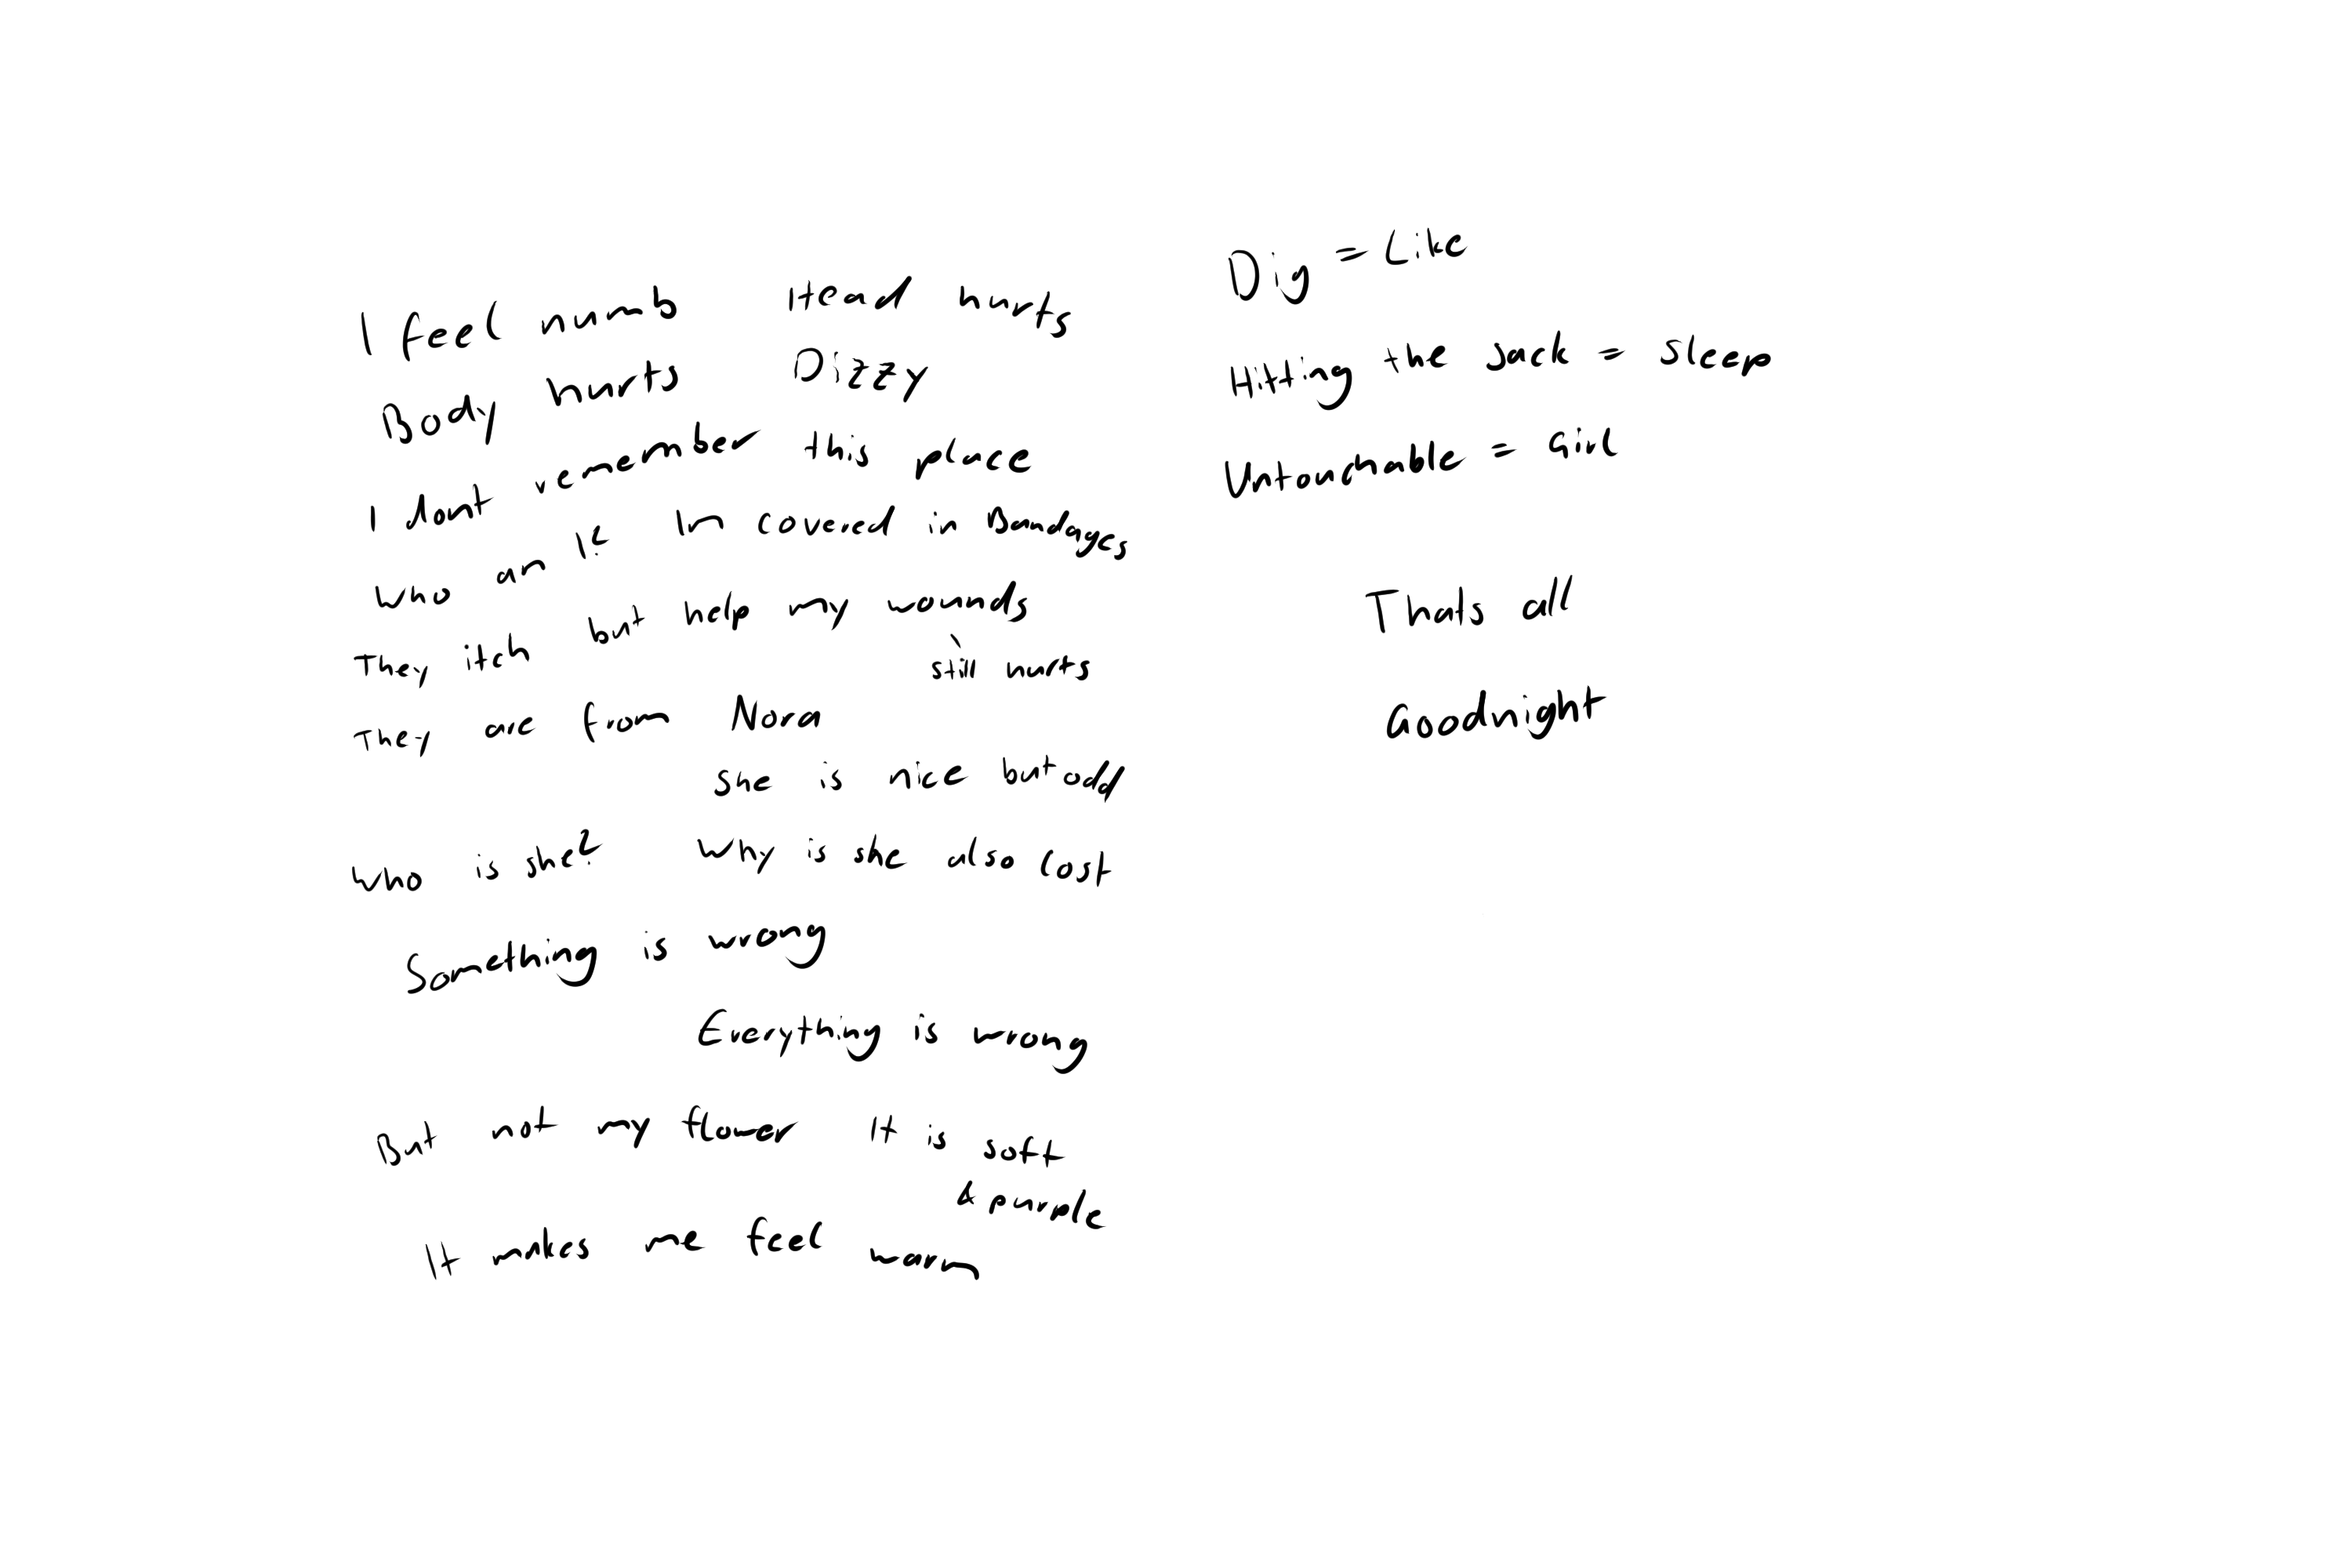 I feel numb Head hurts
Body hurts Dizzy
I dont remember this place
Who am I? Im covered in Bandages
They itch but help my wounds
still hurts
They are from Nora
she is nice but odd
Who is she? Why is she also lost
Something is wrong
Everything is wrong
But not my flower It is soft
& purple
It makes me feel warm
Dig = Like
Hitting the jack = sleep
Untouchable = Girl
Thats all
Goodnight